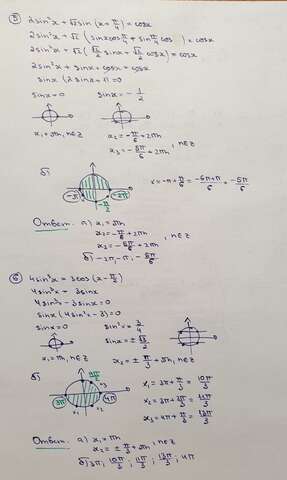 ⑤ 2sin²x + √2 sin (x + π/4) = cosx
2sin²x + √2 ( sinx cos π/4 + sin π/4 cos ) = cosx
2sin²x + √2 ( √2/2 sinx + √2/2 cosx ) = cosx
2sin²x + sinx + cosx = cosx
sinx (2sinx + 1) = 0
sinx = 0 sinx = - 1/2
x₁ = πn, n∈Z x₂ = - π/6 + 2πn
x₃ = - 5π/6 + 2πn , n∈Z
б)
-π -2π
- π/2
x = -π + π/6 = (-6π + π)/6 = -5π/6
Ответ: а) x₁ = πn
x₂ = - π/6 + 2πn
x₃ = - 5π/6 + 2πn , n∈Z
б) -2π, -π, - 5π/6
⑥ 4sin³x = 3cos (x - π/2)
4sin³x = 3sinx
4sin³x - 3sinx = 0
sinx (4sin²x - 3) = 0
sinx = 0 sin² = 3/4
sinx = ± √3/2
x₁ = πn, n∈Z x₂ = ± π/3 + πn, n∈Z
б)
3π 4π
x₁ x₂ x₃
x₁ = 3π + π/3 = 10π/3
x₂ = 3π + 2π/3 = 11π/3
x₃ = 4π + π/3 = 13π/3
Ответ: а) x₁ = πn
x₂ = ± π/3 + πn, n∈Z
б) 3π; 10π/3; 11π/3; 13π/3; 4π